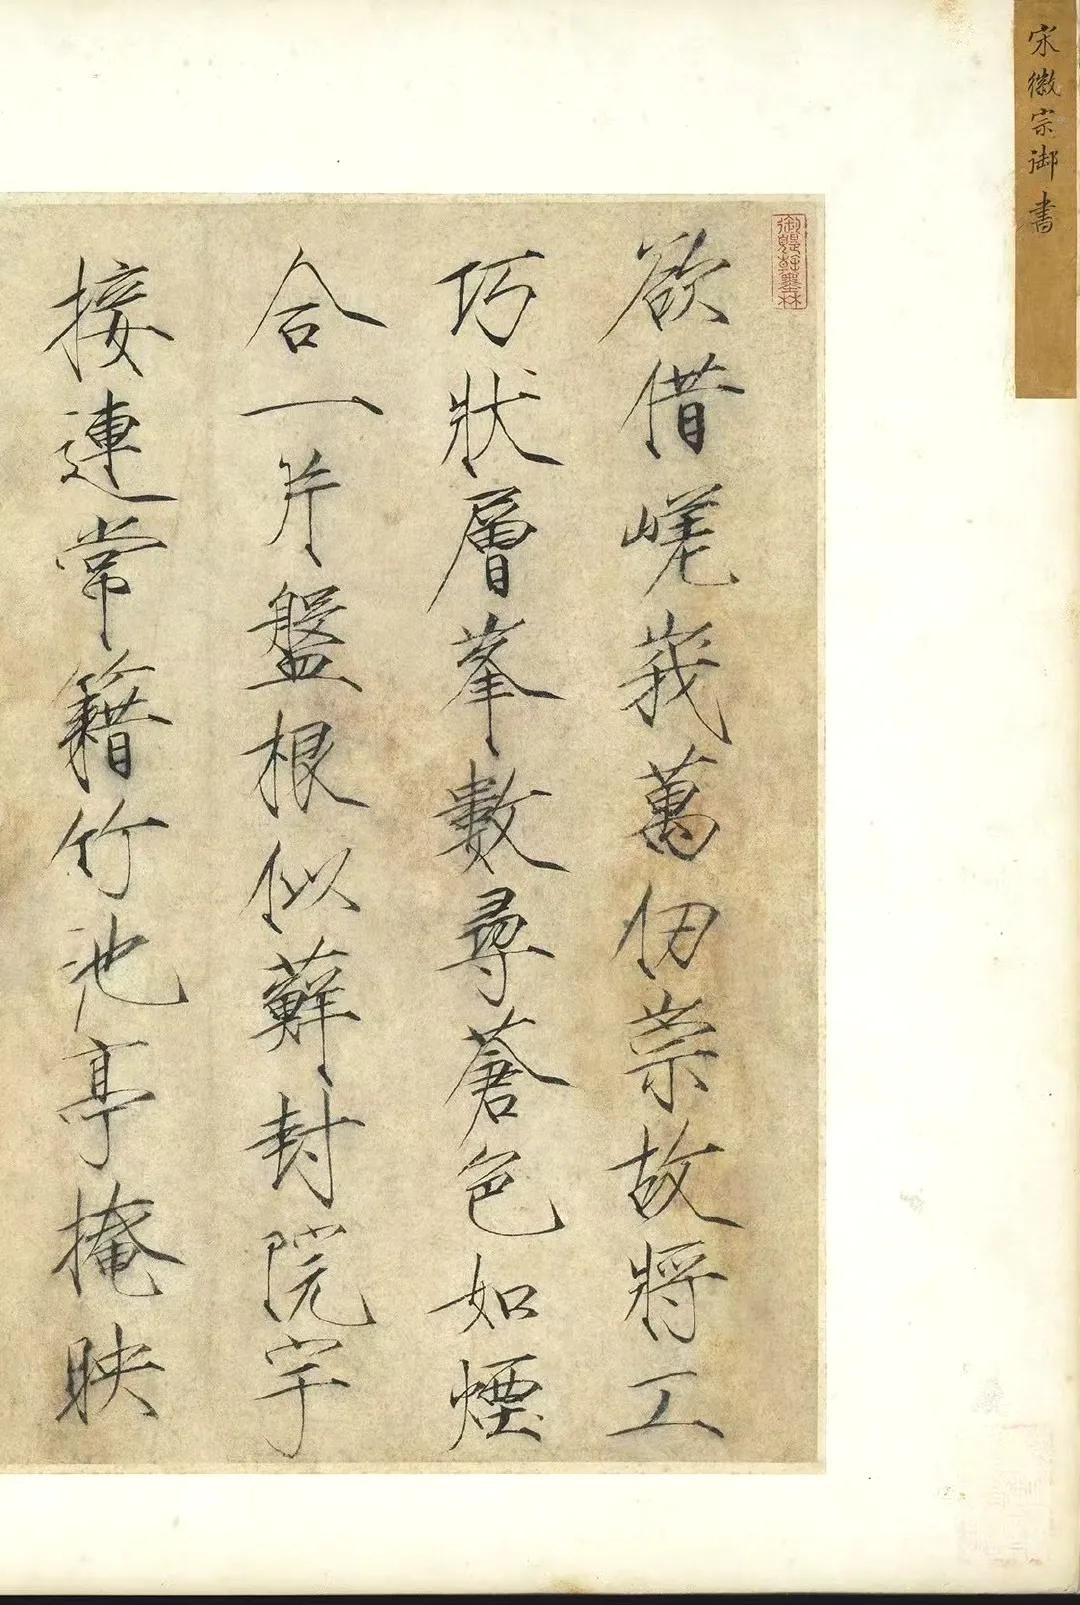 宋徽宗御書
欲借嵯峨萬仞崇故將工
巧狀層峯數尋蒼色如煙
合一片盤根似蘚封院宇
接連常籍竹池亭掩映